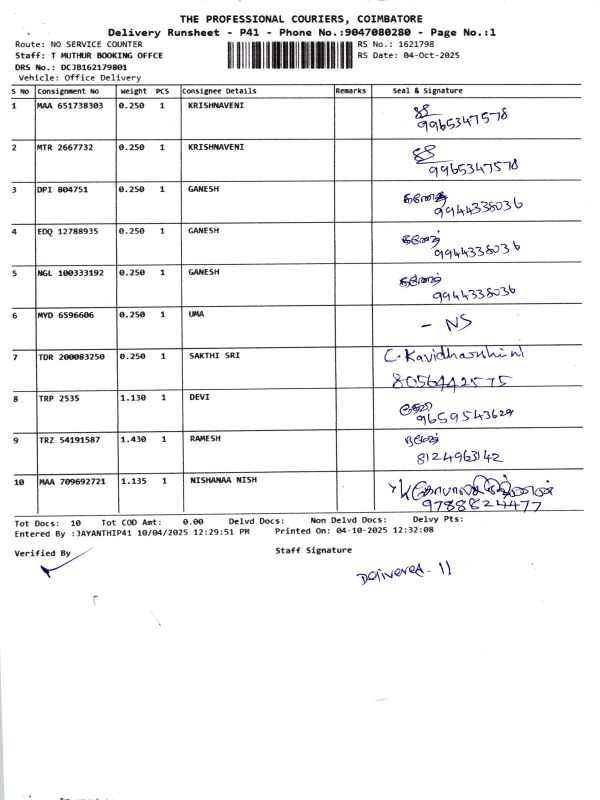 THE PROFESSIONAL COURIERS, COIMBATORE
Delivery Runsheet - P41 - Phone No.:9047080280 - Page No.:1
Route: NO SERVICE COUNTER RS No.: 1621798
Staff: T MUTHUR BOOKING OFFCE RS Date: 04-Oct-2025
DRS No.: DCJB162179801
Vehicle: Office Delivery
S No Consignment No Weight PCS Consignee Details Remarks Seal & Signature
1 MAA 651738303 0.250 1 KRISHNAVENI
9965347578
2 MTR 2667732 0.250 1 KRISHNAVENI
9965347578
3 DPI 804751 0.250 1 GANESH கணேஷ்
9944338036
4 EDQ 12788935 0.250 1 GANESH கணேஷ்
9944338036
5 NGL 100333192 0.250 1 GANESH கணேஷ்
9944338036
6 MYD 6596606 0.250 1 UMA
- NS
7 TDR 200083250 0.250 1 SAKTHI SRI C. Kavidharshini
8056442575
8 TRP 2535 1.130 1 DEVI தேவி
9659543629
9 TRZ 54191587 1.430 1 RAMESH ரமேஷ்
8124963142
10 MAA 709692721 1.135 1 NISHANAA NISH
9788824477
Tot Docs: 10 Tot COD Amt: 0.00 Delvd Docs: Non Delvd Docs: Delvy Pts:
Entered By :JAYANTHIP41 10/04/2025 12:29:51 PM Printed On: 04-10-2025 12:32:08
Verified By Staff Signature
Delivered - 11